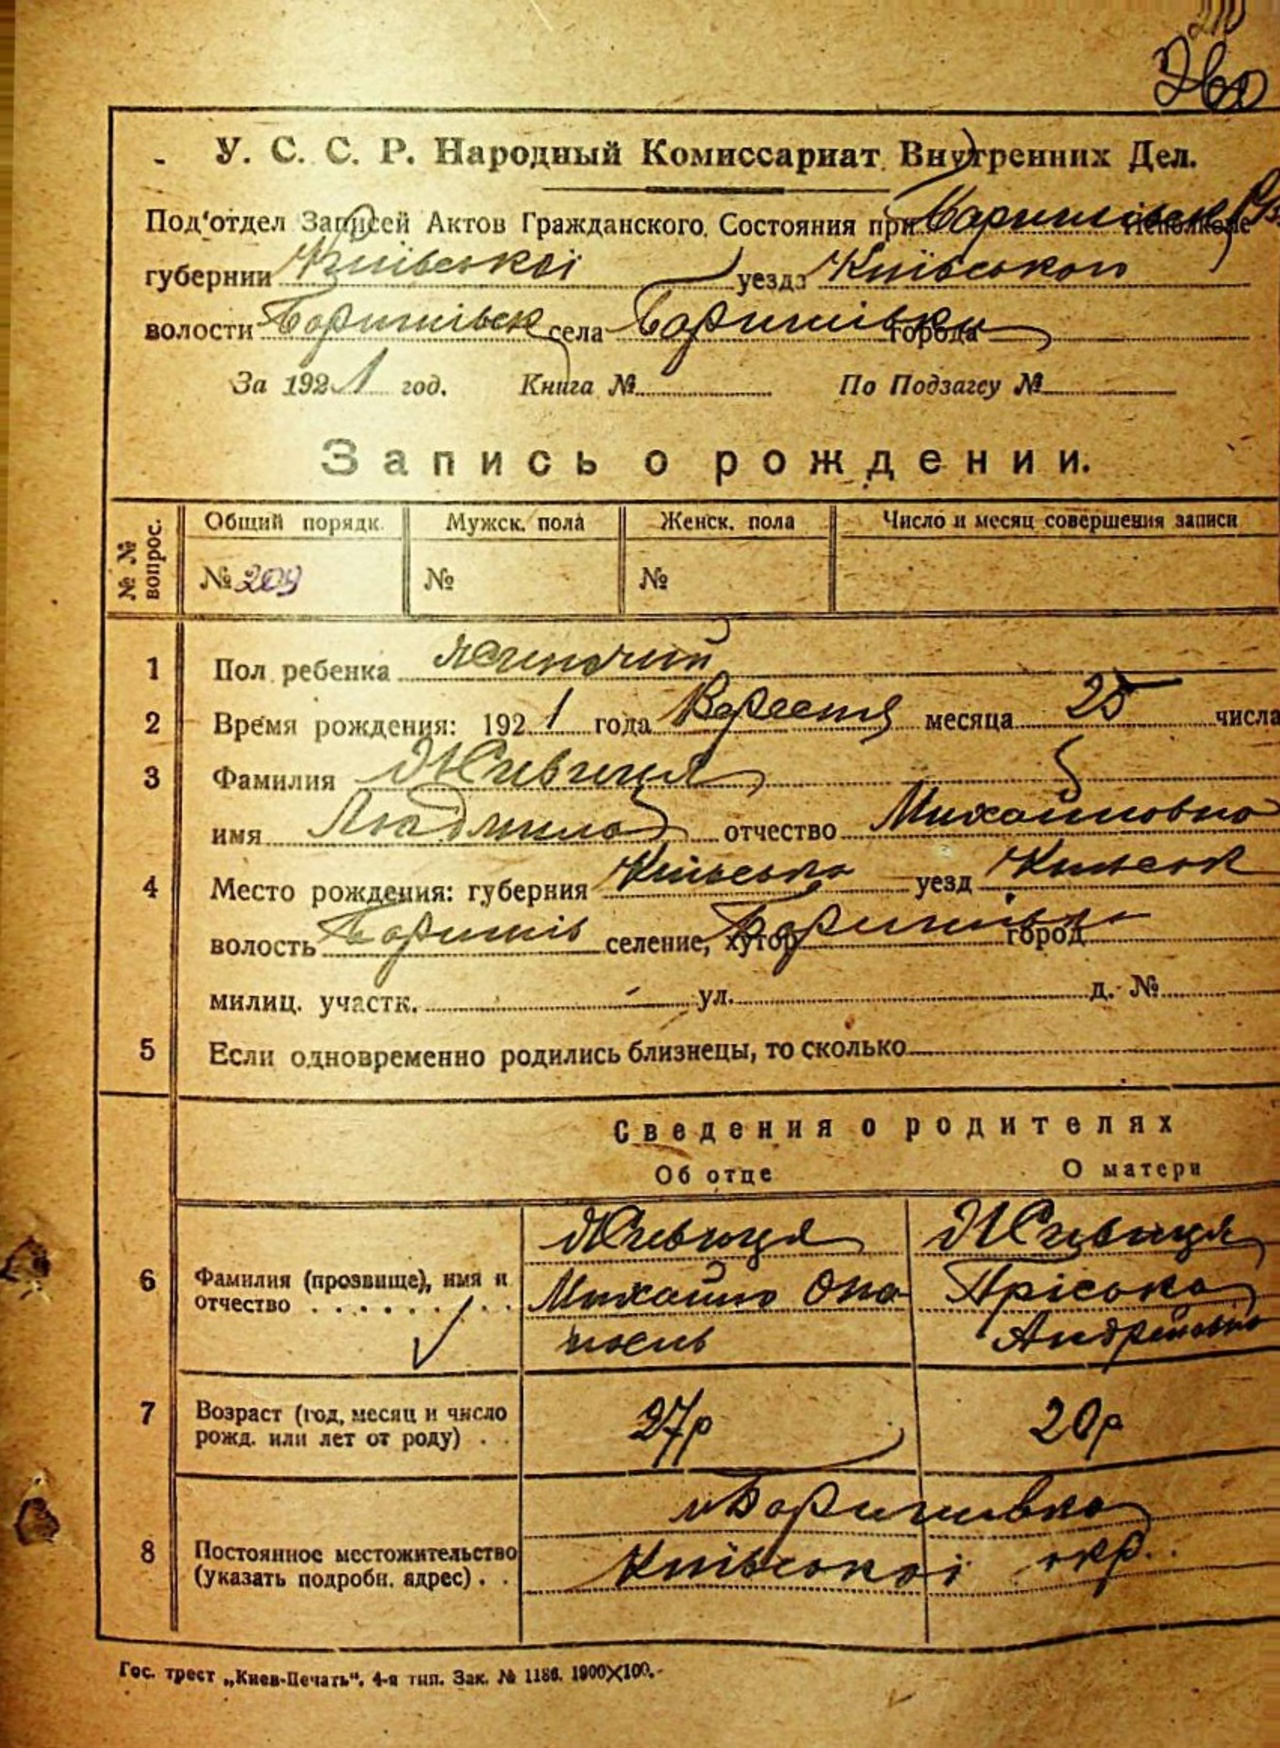 210
260
У. С. С. Р. Народный Комиссариат Внутренних Дел.
Под'отдел Записей Актов Гражданского Состояния при Исполкоме
губернии Київської уезда Київського
волости Баришівск села Баришівки города
За 1921 год. Книга № По Подзагсу №
Запись о рождении.
№ № вопрос. Общий порядк. Мужск. пола Женск. пола Число и месяц совершения записи
№ 209 № №
1 Пол ребенка жиночий
2 Время рождения: 1921 года Вересня месяца 25 числа
3 Фамилия Живиця
имя Людмила отчество Михайловна
4 Место рождения: губерния Київська уезд Київськ
волость Баришів селение, хутор Баришівка город
милиц. участк. ул. д. №
5 Если одновременно родились близнецы, то сколько
Сведения о родителях
Об отце О матери
Живиця Живиця
6 Фамилия (прозвище), имя и отчество Михайло Пріська
Андреівна
7 Возраст (год, месяц и число рожд. или лет от роду) 27р 20р
м Баришівка
8 Постоянное местожительство (указать подробн. адрес) Київської окр.
Гос. трест „Киев-Печать“. 4-я тип. Зак. № 1186. 1900×100.